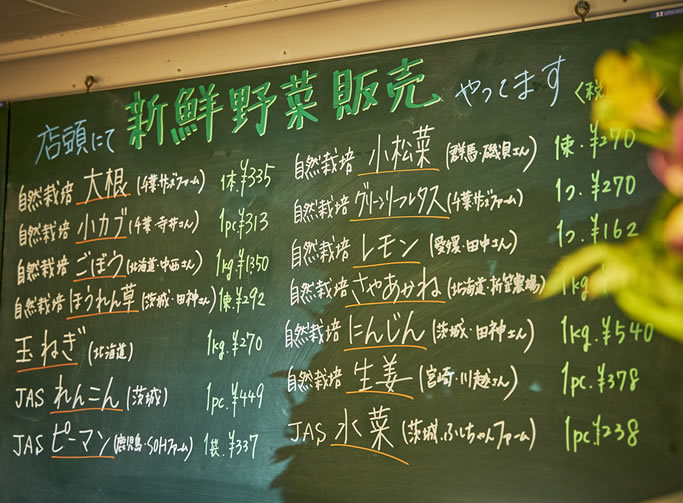 店頭にて 新鮮野菜販売 やってます
自然栽培 大根 (千葉・
1本.¥335
自然栽培 小カブ (千葉・寺井さん)
1pc.¥313
自然栽培 ごぼう (北海道・中西さん)
1kg.¥1350
自然栽培 ほうれん草 (茨城・田神さん)
1束.¥292
玉ねぎ (北海道)
1kg.¥270
JAS れんこん (茨城)
1pc.¥449
JAS ピーマン (鹿児島・SOHファーム)
1袋.¥337
自然栽培 小松菜 (群馬・磯貝さん)
1束.¥270
自然栽培 グリーンリーフレタス (千葉
1つ.¥270
自然栽培 レモン (愛媛・田中さん)
1つ.¥162
自然栽培 さやあかね (北海道・
自然栽培 にんじん (茨城・田神さん)
1kg.¥540
自然栽培 生姜 (宮崎・川越さん)
1pc.¥378
JAS 水菜 (茨城・ふしちゃんファーム)
1pc.¥238